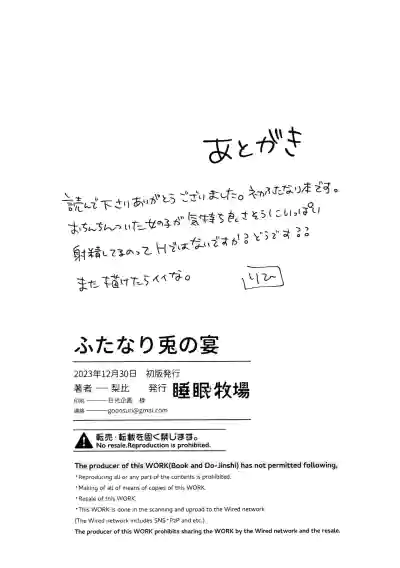 あとがき
読んで下さりありがとうございました。初ふたなり本です。
おちんちんついた女の子が気持ち良さそうにいっぱい
射精してるのってHではないですか？どうです？？
また描けたらイイな。
ふたなり兎の宴
2023年12月30日 初版発行
著者 ― 梨比 発行 睡眠牧場
印刷 ― 日光企画 様
連絡 ― goonsuri@gmai.com
転売・転載を固く禁じます。
No resale.Reproduction is prohibited.
The producer of this WORK(Book and Do-Jinshi) has not permitted following,
・Reproducing all or any part of the contents is prohibited.
・Making of all of means of copies of this WORK.
・Resale of this WORK
・This WORK is done in the scanning and uproad to the Wired network
(The Wired network includes SNS・P2P and etc.)
The producer of this WORK prohibits sharing the WORK by the Wired network and the resale.